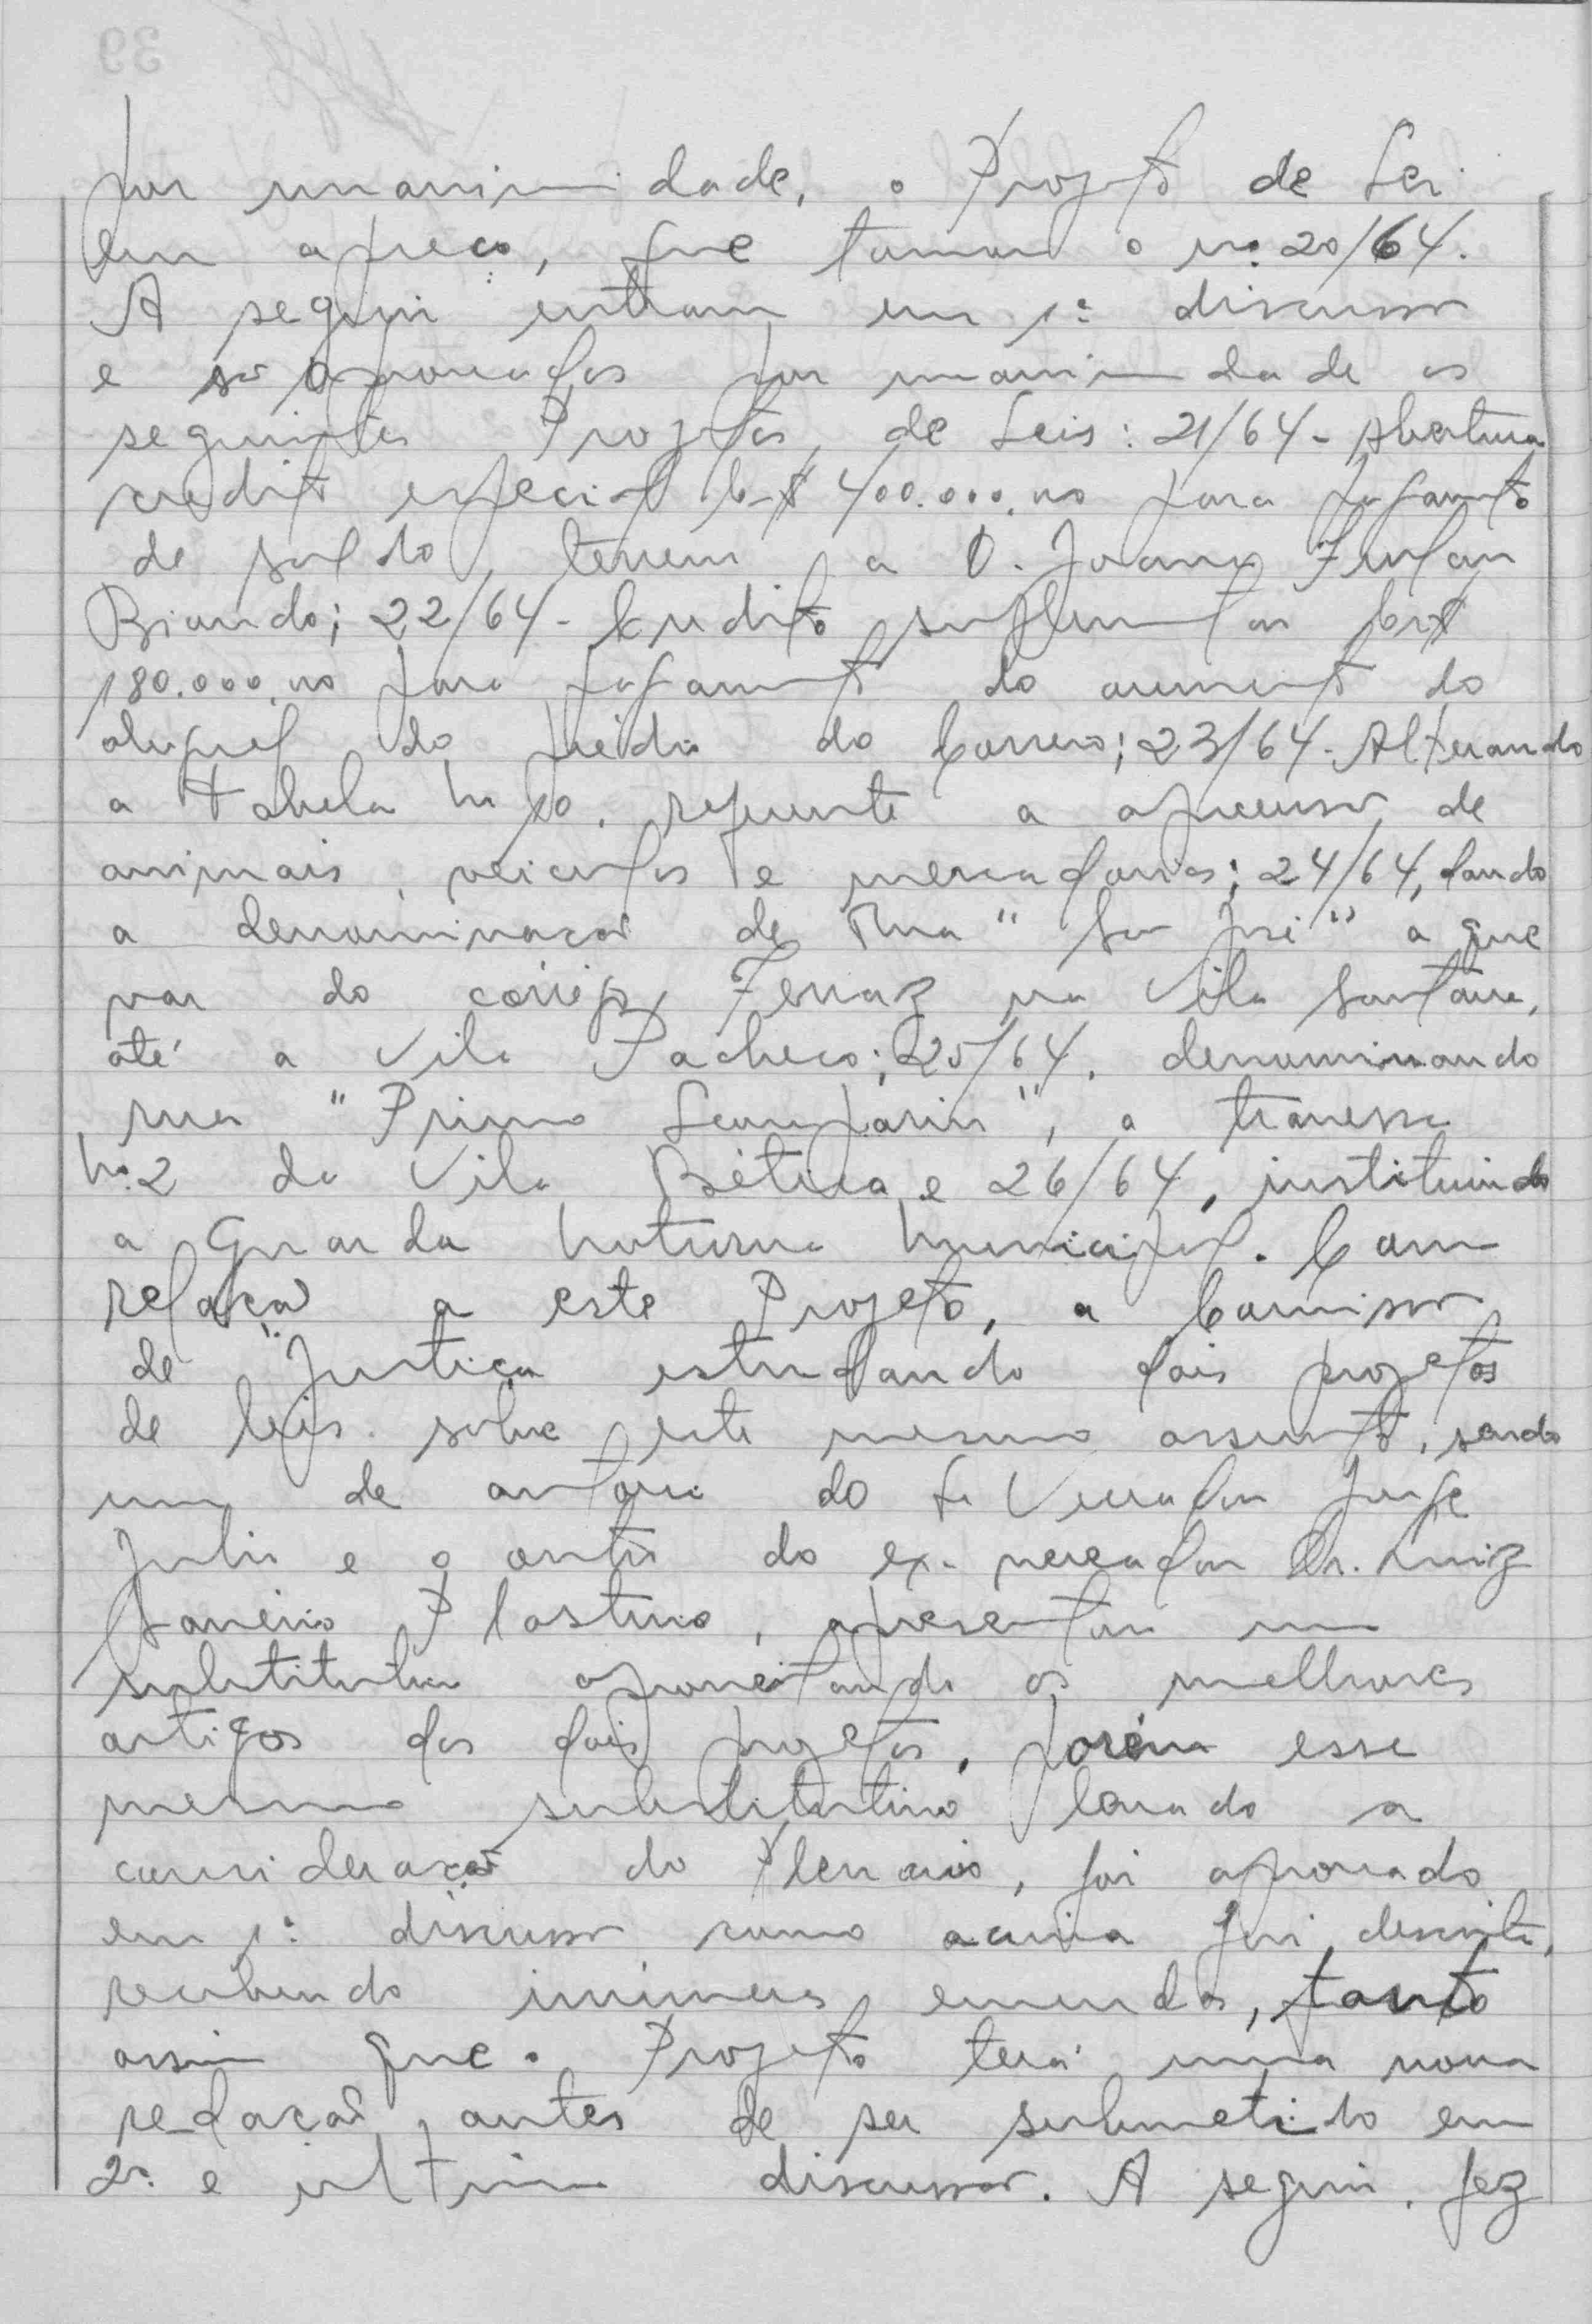 por unanimidade, o Projeto de Lei
em apreço, que tomou o nº 20/64.
A seguir entram em 1ª discussão
e são aprovados por unanimidade os
seguintes Projetos de Leis: 21/64 - Abertura
credito especial Cr$ 400.000,00 para pagamento
de saldo terreno a D. Joana Furlan
Biando; 22/64 - Credito suplementar Cr$
180.000,00 para pagamento do aumento do
aluguel do prédio do Correio; 23/64 - Alterando
a tabela nº 10, referente a apreensão de
animais, veiculos e mercadorias; 24/64, dando
a denominação de Rua "São José" a que
vai do córrego Ferraz na Vila Santana,
até a Vila Pacheco; 25/64, denominando
rua "Primo Scomparin", a travessa
nº 2 da Vila Bética e 26/64, instituindo
a Guarda Noturna Municipal. Com
relação a este Projeto, a Comissão
de Justiça estudando dois projetos
de leis sobre este mesmo assunto, sendo
um de autoria do Sr Vereador Jorge
Julio e o outro do ex-vereador Dr. Luiz
Janeiro Plastino, apresentou um
substitutivo aproveitando os melhores
artigos dos dois projetos, porém esse
mesmo substitutivo levado a
consideração do Plenario, foi aprovado
em 1ª discussão como acima foi descrito,
recebendo inúmeras emendas, tanto
assim que o Projeto terá uma nova
redação, antes de ser submetido em
2ª e ultima discussão. A seguir, fez